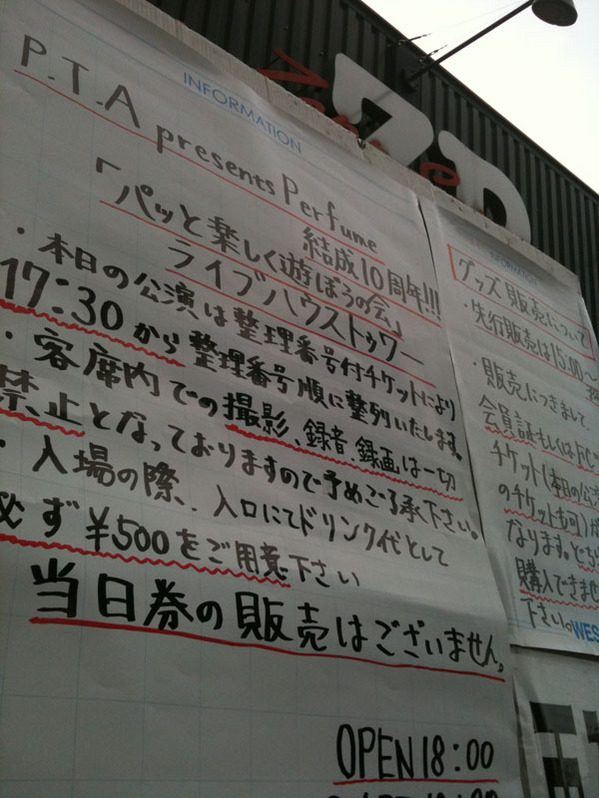 INFORMATION
P.T.A presents Perfume
結成10周年!!!
「パッと楽しく遊ぼうの会」
ライブハウストゥワー
・本日の公演は整理番号付チケットにより
17:30から整理番号順に整列いたします。
・客席内での撮影、録音、録画は一切
禁止となっておりますので予めご了承下さい。
・入場の際、入口にてドリンク代として
必ず¥500をご用意下さい
当日券の販売はございません。
OPEN 18:00
INFORMATION
グッズ販売について
・先行販売は15:00〜
・販売につきまして、
会員証もしくは
チケット(本日の公
のチケットも可)が
なります。どちら
購入できませ
下さい。
WES